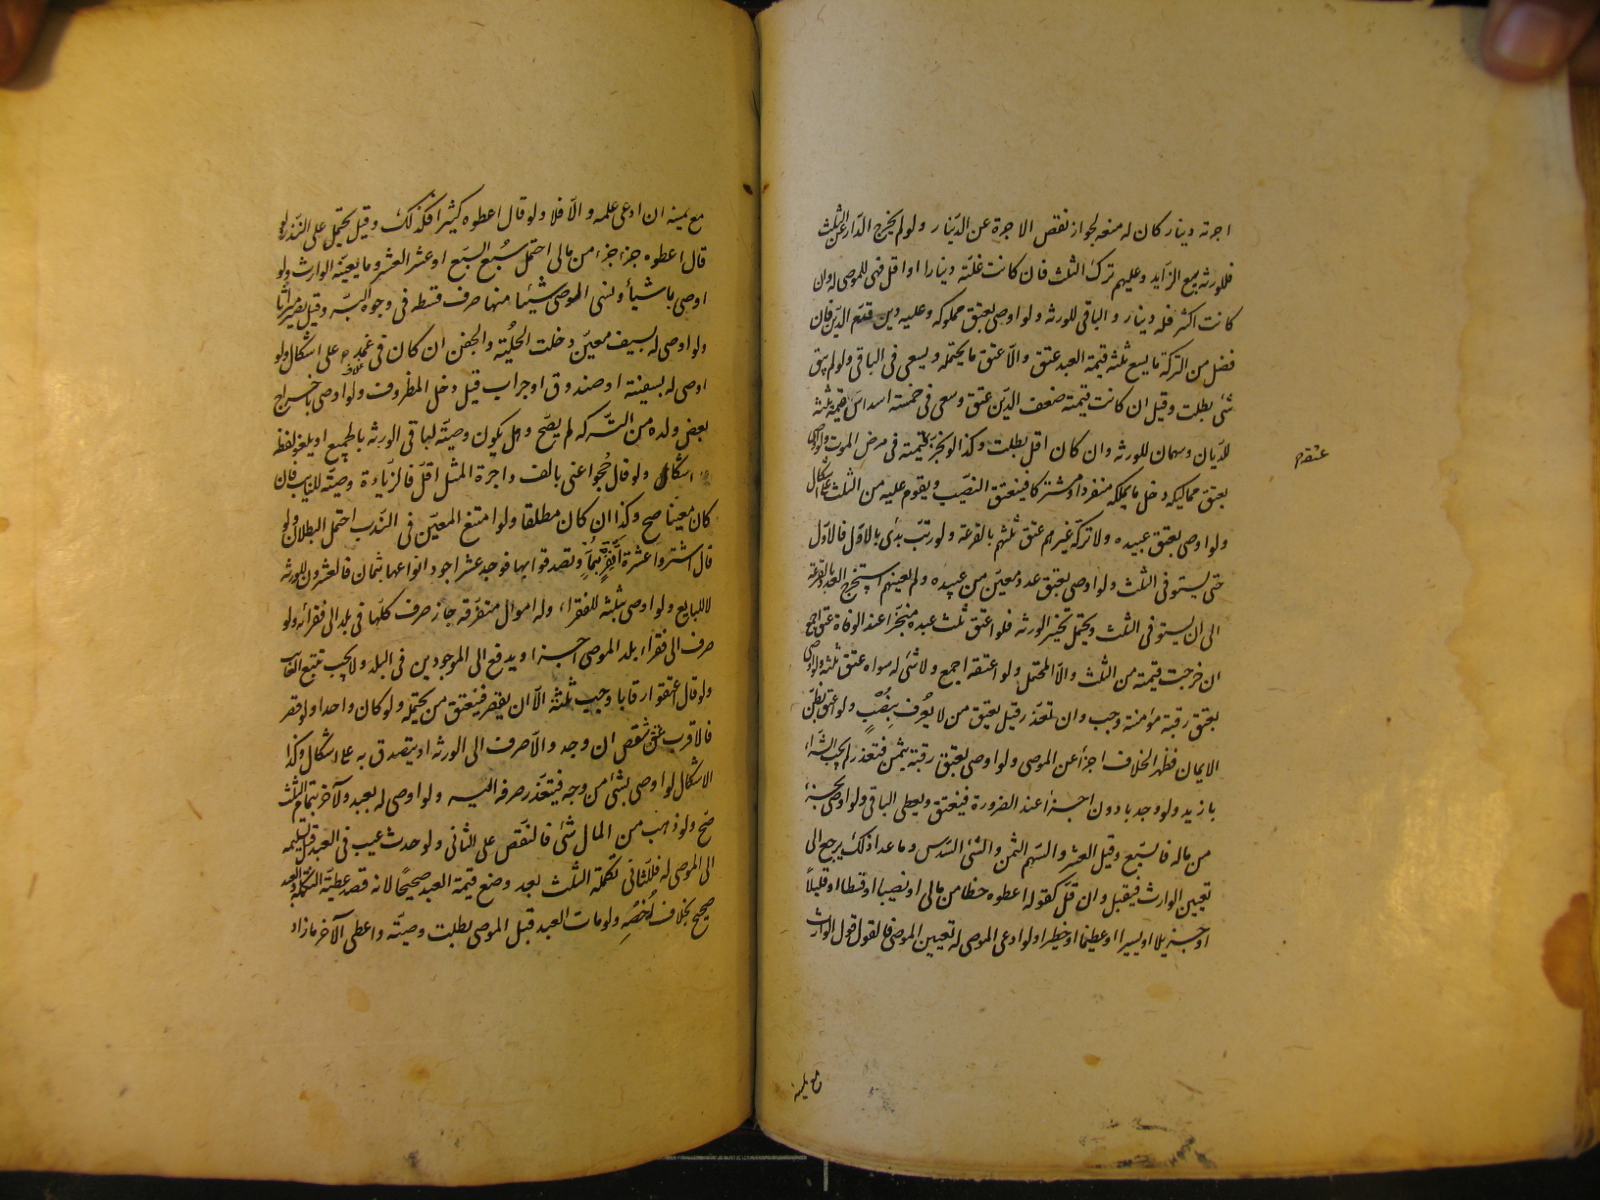 اجرته دینار کان له منعه لجواز نقص الاجرة عن الدّینار ولو لم یخرج الدّار من الثلث
فللورثه بیع الزاید وعلیهم ترک الثلث فان کانت غلّته دینارا او اقل فهی للموصی له وان
کانت اکثر فله دینار والباقی للورثه ولو اوصی بعتق مملوکه وعلیه دین قدّم الدّین فان
فضل من الترکة ما یسع ثلثه قیمة العبد عتق والّا عتق ما یحتمله ویسعی فی الباقی ولو لم یبق
شئ بطلت وقیل ان کانت قیمته ضعف الدّین عتق وسعی فی خمسة اسداس قیمته ثلثة
للدّیان وسهمان للورثه وان کان اقل بطلت وکذا لو نجز قیمته فی مرض الموت ولو اوصی
عتقه م
بعتق ممالیکه دخل ما یملکه منفردا ومشترکا فینعتق النصیب ویقوم علیه من الثلث علی اشکال
ولو اوصی بعتق عبیده ولا ترکة غیرهم عتق ثلثهم بالقرعة ولو رتّب بدئ بالاوّل فالاوّل
حتی یستوفی الثلث ولو اوصی بعتق عدد معیّن من عبیده ولم یعینهم استخرج العدد بالقرعة
الی ان یستوفی الثلث ویحتمل تخییر الورثه فلو اعتق ثلث عبده منجزا عند الوفاة عتق اجمع
ان خرجت قیمته من الثلث والّا المحتمل ولو اعتقه اجمع ولا شئ له سواه عتق ثلثه ولو اوصی
بعتق رقبة مؤمنة وجب وان تعذّر قیل یعتق من لا یُعرف بِنُصْبٍ ولو اعتق بظنّ
الایمان فظهر الخلاف اجزأ عن الموصی ولو اوصی بعتق رقبة بثمن فتعذر لم یجب الشراء
بازید ولو وجد بادون اجزأ عند الضرورة فینعتق ویعطی الباقی ولو اوصی بجزء
من ماله فالسّبع وقیل العشر والسّهم الثمن والشئ السّدس وما عدا ذلک یرجع الی
تعیین الوارث فیقبل وان قلّ کقوله اعطوه حظا من مالی او نصیبا او قسطا او قلیلاً
او جزیلا او یسیرا او عظیما او خطیرا ولو ادعی الموصی له تعیین الموصی فالقول قول الوارث
مع یمینه
مع یمینه ان ادعی علمه والّا فلا ولو قال اعطوه کثیرا فکذلک وقیل یحتمل علی النّذر ولو
قال اعطوه جزء جزء من مالی احتمل سُبع السّبع او عشر العشر وما یعیّنه الوارث ولو
اوصی باشیاء ونسی الموصی شیئا منها صرف قسطه فی وجوه البرّ وقیل یصیر میراثا
ولو اوصی له بسیف معیّن دخلت الحلیة والجفن ان کان فی غمده علی اشکال ولو
غلاف
اوصی له بسفینة او صندوق او جراب قیل دخل المظروف ولو اوصی باخراج
بعض ولده من الترکة لم یصّح وهل یکون وصیّة لباقی الورثه بالجمیع او یلغو لفظه
اشکال ولو قال حُجوا عنی بالف واجرة المثل اقلّ فالزّیادة وصیّة للنایب فان
کان معینا صح وکذا ان کان مطلقا ولو امتنع المعیّن فی النّدب احتمل البطلان ولو
قال اشتروا عشرة اقفزةٍ بمأةٍ وتصدقوا بها فوجد عشر اجود انواعها بثمان فالعشرون للورثه
لا للبایع ولو اوصی بثلثه للفقراء وله اموال متفرقة جاز صرف کلّها فی بلد الی فقرائه ولو
صرف الی فقراء بلد الموصی اجزأ ویدفع الی الموجودین فی البلد ولا یجب تتبع الغایب
ولو قال اعتقوا رقابا وجب ثلثة الّا ان یقصر فینعتق من یحتمله ولو کان واحدا ولو قصر
فالاقرب عتق شقص ان وجد والّا صرف الی الورثه او یتصدق به علی اشکال وکذا
الاشکال لو اوصی بشئ من وجه فیتعذّر صرفه الیه ولو اوصی له بعبد ولآخر بتمام الثلث
صح ولو ذهب من المال شئ فالنّقص علی الثانی ولو حدث عیب فی العبد قبل تسلیمه
الی الموصی له فللثانی تکملة الثلث بعد وضع قیمة العبد صحیحًا لانه قصد عطیّة التکملة والعبد
صحیح بخلاف رُخصِهِ ولو مات العبد قبل الموصی بطلت وصیّته واعطی الآخر ما زاد